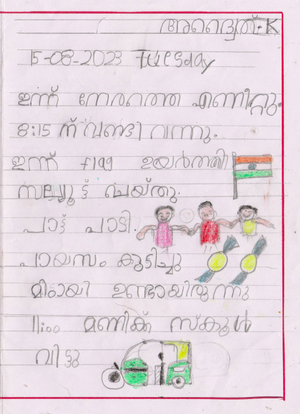 അദ്വൈത്-K
15-08-2023 Tuesday
ഇന്ന് നേരത്തെ എണീറ്റു.
8:15 ന് വണ്ടി വന്നു.
ഇന്ന് flag ഉയർത്തി
സല്യൂട്ട് ചെയ്തു.
പാട്ട് പാടി.
പായസം കുടിച്ചു
മിഠായി ഉണ്ടായിരുന്നു
11:00 മണിക്ക് സ്കൂൾ
വിട്ടു